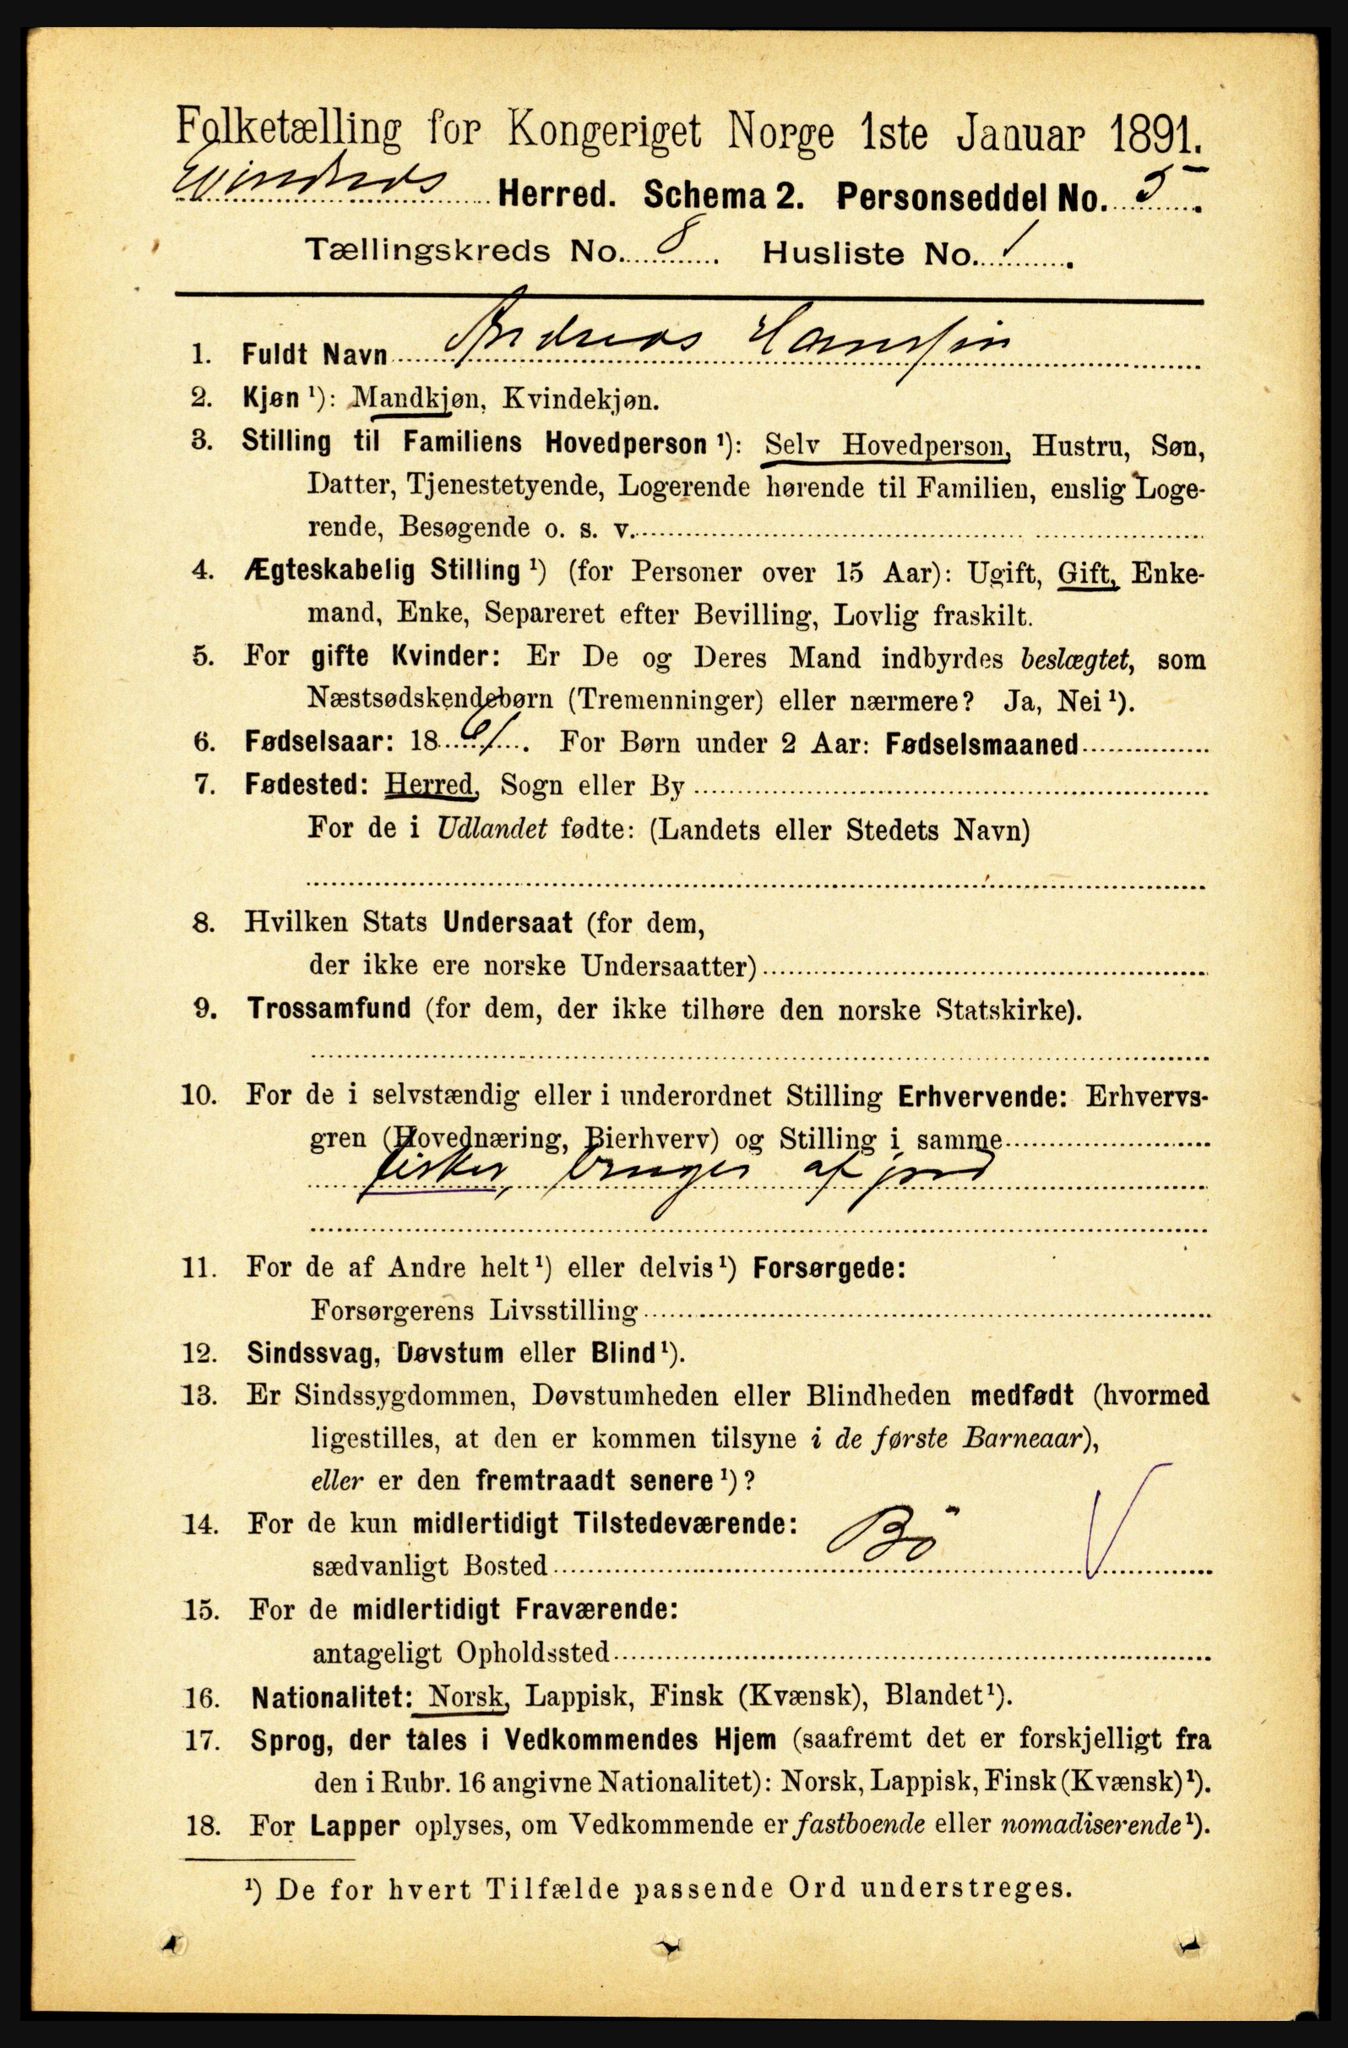 Folketælling for Kongeriget Norge 1ste Januar 1891.
Evindvigs Herred. Schema 2. Personseddel No. 5.
Tællingskreds No. 8. Husliste No. 1.
1. Fuldt Navn Andreas Hanssen
2. Kjøn ¹): Mandkjøn, Kvindekjøn.
3. Stilling til Familiens Hovedperson ¹): Selv Hovedperson, Hustru, Søn,
Datter, Tjenestetyende, Logerende hørende til Familien, enslig Loge-
rende, Besøgende o. s. v.
4. Ægteskabelig Stilling ¹) (for Personer over 15 Aar): Ugift, Gift, Enke-
mand, Enke, Separeret efter Bevilling, Lovlig fraskilt.
5. For gifte Kvinder: Er De og Deres Mand indbyrdes beslægtet, som
Næstsødskendebørn (Tremenninger) eller nærmere? Ja, Nei ¹).
6. Fødselsaar: 1861. For Børn under 2 Aar: Fødselsmaaned
7. Fødested: Herred, Sogn eller By
For de i Udlandet fødte: (Landets eller Stedets Navn)
8. Hvilken Stats Undersaat (for dem,
der ikke ere norske Undersaatter)
9. Trossamfund (for dem, der ikke tilhøre den norske Statskirke).
10. For de i selvstændig eller i underordnet Stilling Erhvervende: Erhvervs-
gren (Hovednæring, Bierhverv) og Stilling i samme
fisker, bruger af jord
11. For de af Andre helt ¹) eller delvis ¹) Forsørgede:
Forsørgerens Livsstilling
12. Sindssvag, Døvstum eller Blind ¹).
13. Er Sindssygdommen, Døvstumheden eller Blindheden medfødt (hvormed
ligestilles, at den er kommen tilsyne i de første Barneaar),
eller er den fremtraadt senere ¹)?
14. For de kun midlertidigt Tilstedeværende:
sædvanligt Bosted Bö V
15. For de midlertidigt Fraværende:
antageligt Opholdssted
16. Nationalitet: Norsk, Lappisk, Finsk (Kvænsk), Blandet ¹).
17. Sprog, der tales i Vedkommendes Hjem (saafremt det er forskjelligt fra
den i Rubr. 16 angivne Nationalitet): Norsk, Lappisk, Finsk (Kvænsk) ¹).
18. For Lapper oplyses, om Vedkommende er fastboende eller nomadiserende ¹).
¹) De for hvert Tilfælde passende Ord understreges.